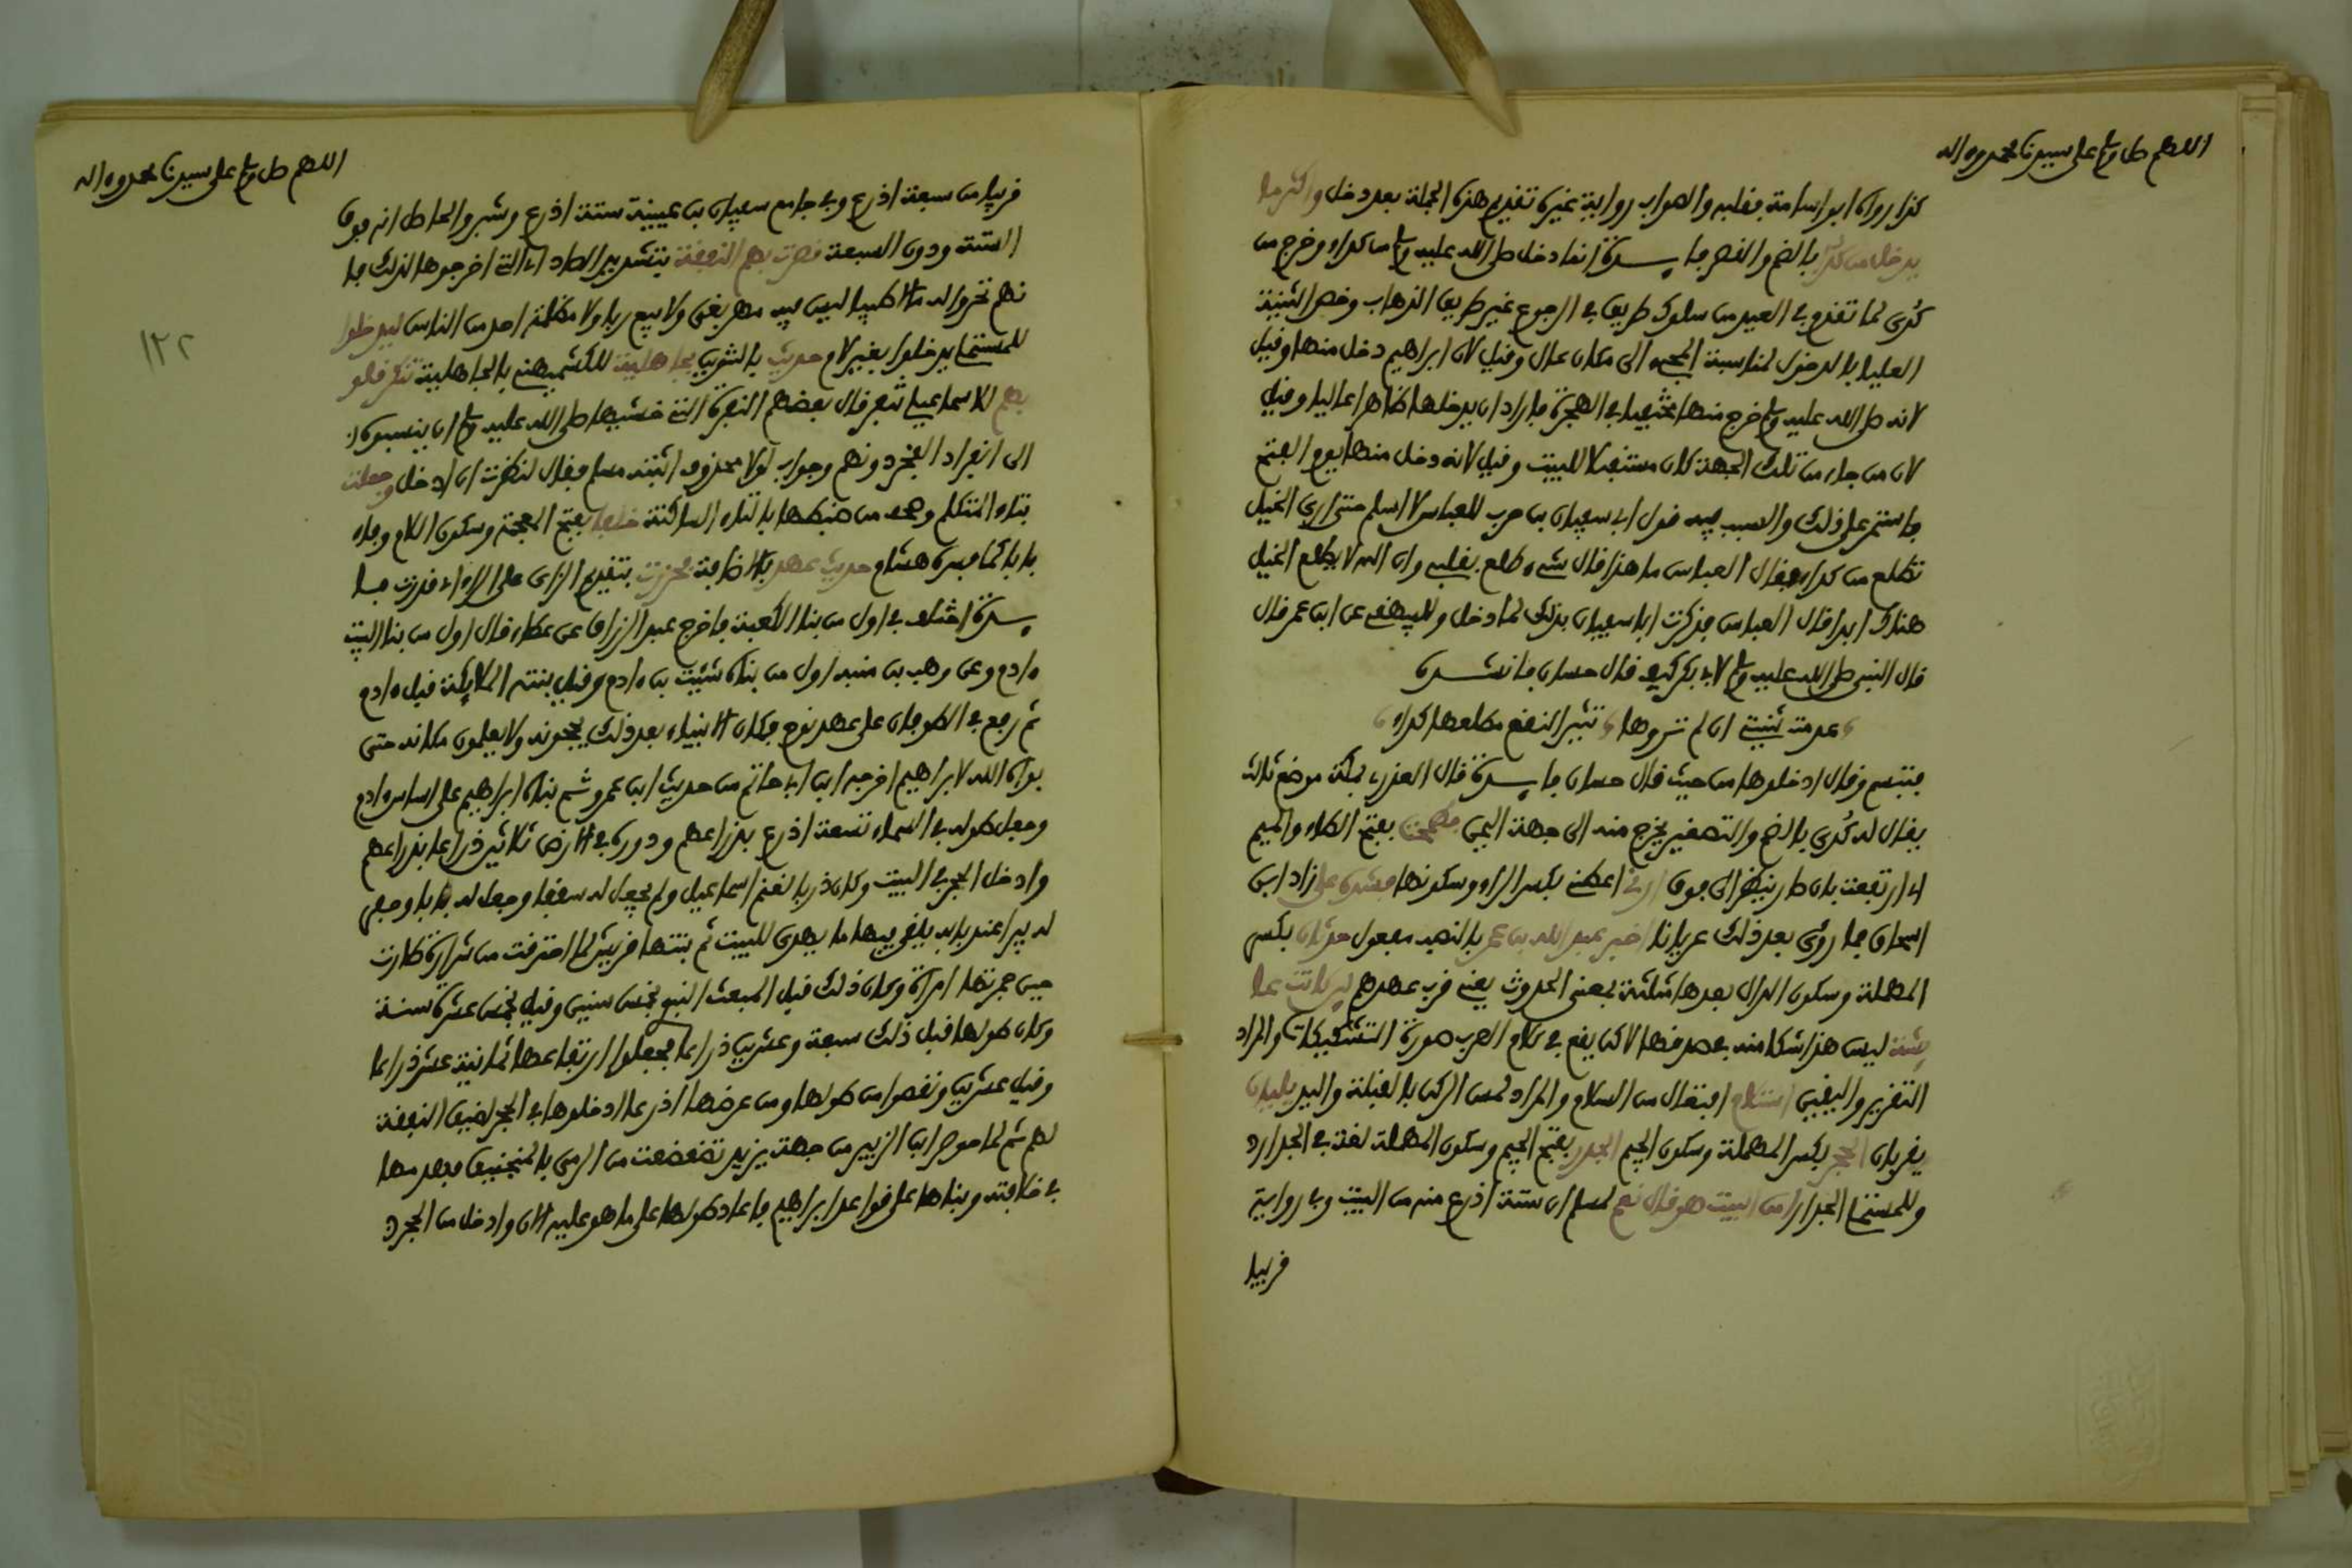 اللهم صل وسلم على سيدنا محمد وءاله
كذا رواه ابو اسامة فقلبه والصواب رواية غيره تقديم هذه الجملة بعد دخل واكثر ما
يدخل من كدى بالضم والقصر فايدة انما دخل صلى الله عليه وسلم من كداء وخرج من
كدى لما تقدم في العيد من سلوك طريق في الرجوع غير طريق الذهاب وخص الثنية
العليا بالدخول لمناسبة المجيء الى مكان عال وقيل لان ابراهيم دخل منها وقيل
لانه صلى الله عليه وسلم خرج منها مختفيا في الهجرة فاراد ان يدخلها ظاهرا عاليا وقيل
لان من جاء من تلك الجهة كان مستقبلا للبيت وقيل لانه دخل منها يوم الفتح
فاستمر على ذلك والسبب فيه قول ابي سفيان بن حرب للعباس لا اسلم حتى ارى الخيل
تطلع من كداء فقال العباس ما هذا قال شيء طلع بقلبي وان الله لا يطلع الخيل
هناك ابدا قال العباس فذكرت ابا سفيان بذلك لما دخل وللبيهقي عن ابن عمر قال
قال النبي صلى الله عليه وسلم لابي بكر كيف قال حسان فانشده
عدمت ثنيتي ان لم تروها تثير النقع مطلعها كداء
فتبسم وقال ادخلوها من حيث قال حسان فايدة قال العذري بمكة موضع ثالث
يقال له كدى بالضم والتصغير يخرج منه الى جهة اليمن فطمحت بفتح الطاء والميم
اي ارتفعت بان صار ينظر الى فوق ارني اعطني بكسر الراء وسكونها فشده علي زاد ابن
اسحاق فما رؤي بعد ذلك عريانا اخبر عبد الله بن عمر بالنصب مفعول حدثان بكسر
المهملة وسكون الدال بعدها مثلثة بمعنى الحدوث يعني قرب عهدهم لئن كانت عا
يشة ليس هذا شكا منه في صدقها لاكن يقع في كلام العرب صورة التشكيك والمراد
التقرير واليقين استلام افتعال من السلام والمراد لمس الركن بالقبلة واليد يليان
يقربان الحجر بكسر المهملة وسكون الجيم الجدر بفتح الجيم وسكون المهملة لغة في الجدار د
وللمستملي الجدار امن البيت هو قال نعم لمسلم ان ستة اذرع منه من البيت وفي رواية
قريبا
اللهم صل وسلم على سيدنا محمد وءاله
قريبا من سبعة اذرع وفي جامع سفيان بن عيينة ستة اذرع وشبر والحاصل انه فوق
الستة ودون السبعة قصرت بهم النفقة بتشديد الصاد اي التي اخرجوها لذلك فا
نهم تحروا له مالا طيبا ليس فيه مهر بغي ولا بيع ربا ولا مظلمة احد من الناس ليدخلوا
للمستملي يدخلوا بغير لام حديث بالتنوين بجاهلية للكشميهني بالجاهلية تنكر قلو
بهم للاسماعيلي تنفر قال بعضهم النفرة التي خشيها صلى الله عليه وسلم ان ينسبوه
الى انفراد الفخر دونهم وجواب لولا محذوف اثبته مسلم فقال لنظرت ان ادخل وجعلت
بتاء المتكلم ووهم من ضبطها بالتاء الساكنة خلفا بفتح المعجمة وسكون اللام وفاء
بابا كما فسره هشام حديث عهد بالاضافة فحزرت بتقديم الزاي على الراء اي قدرت فا
يدة اختلف في اول من بنا الكعبة فاخرج عبد الرزاق عن عطاء قال اول من بنا البيت
ءادم وعن وهب بن منبه اول من بناه شيث بن ءادم وقيل بنته الملايكة قبل ءادم
ثم رفع في الطوفان على عهد نوح فكان الانبياء بعد ذلك يحجونه ولا يعلمون مكانه حتى
بوأه الله لابراهيم اخرجه ابن ابي حاتم من حديث ابن عمر وثم بناه ابراهيم على اساس ءادم
وجعل طوله في السماء تسعة اذرع بذراعهم ودوره في الارض ثلاثين ذراعا بذراعهم
وادخل الحجر في البيت وكان زربا لغنم اسماعيل ولم يجعل له سقفا وجعل له بابا وحفر
له بيرا عند بابه يلقى فيها ما يهدى للبيت ثم بنتها قريش لما احترقت من شرارة طارت
حين جمرتها امرأة وكان ذلك قبل المبعث النبوي بخمس سنين وقيل بخمس عشرة سنة
وكان طولها قبل ذلك سبعة وعشرين ذراعا فجعلوا ارتفاعها ثمانية عشر ذراعا
وقيل عشرين ونقصوا من طولها ومن عرضها اذرعا ادخلوها في الحجر لضيق النفقة
لهم ثم لما حوصر ابن الزبير من جهة يزيد تضعضعت من الرمي بالمنجنيق فهدمها
في خلافته وبناها على قواعد ابراهيم فاعاد طولها على ما هو عليه الان وادخل من الحجر
١٢٢